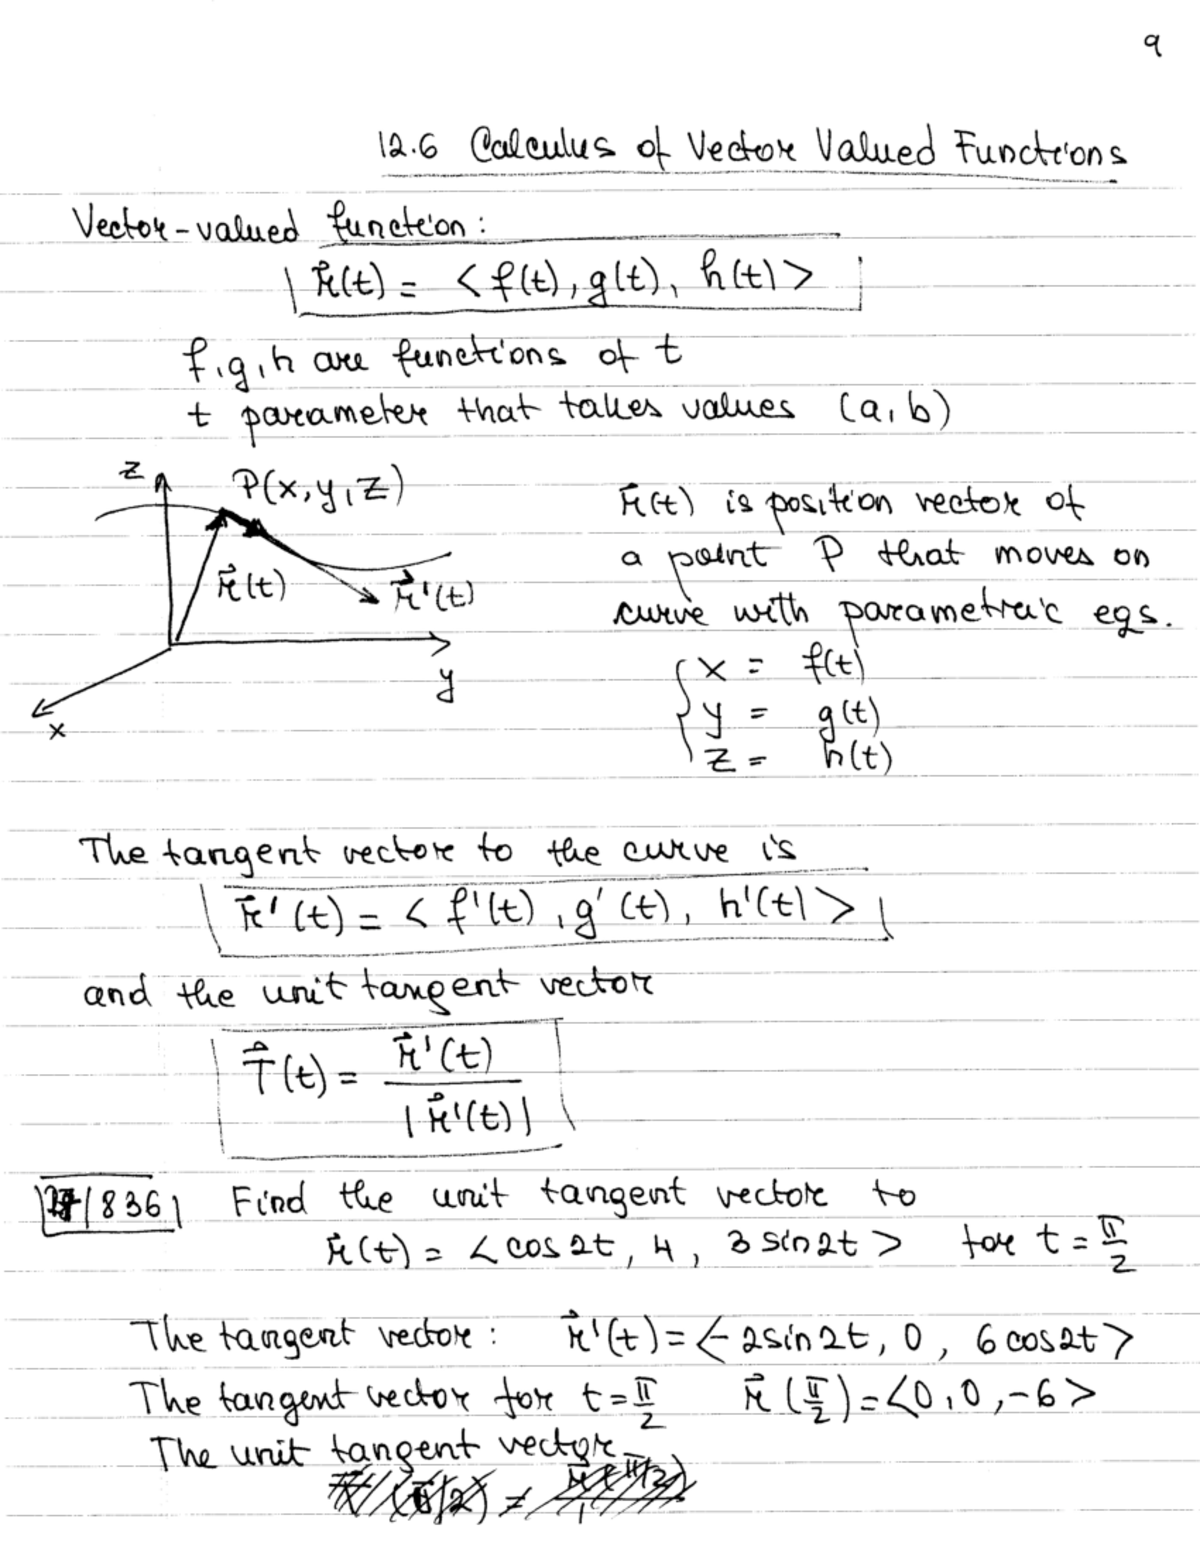 9
12.6 Calculus of Vector Valued Functions
Vector-valued function:
r⃗(t) = <f(t), g(t), h(t)>
f, g, h are functions of t
t parameter that takes values (a, b)
z
P(x, y, z)
r⃗(t)
r⃗'(t)
y
x
r⃗(t) is position vector of
a point P that moves on
curve with parametric eqs.
x = f(t)
y = g(t)
z = h(t)
The tangent vector to the curve is
r⃗'(t) = <f'(t), g'(t), h'(t)>
and the unit tangent vector
T⃗(t) = r⃗'(t) / |r⃗'(t)|
/836 Find the unit tangent vector to
r⃗(t) = <cos2t, 4, 3 sin2t> for t = π/2
The tangent vector: r⃗'(t) = <-2sin2t, 0, 6cos2t>
The tangent vector for t = π/2 r⃗(π/2) = <0, 0, -6>
The unit tangent vector